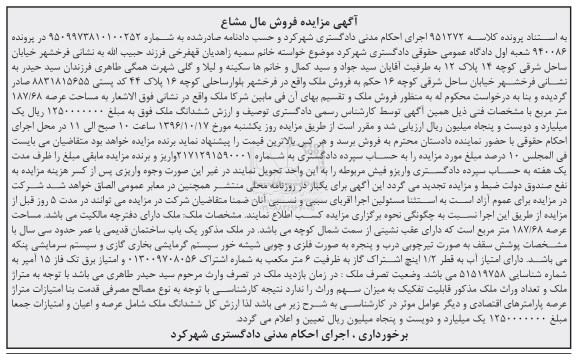 آگهی مزایده فروش مال مشاع
به استناد پرونده کلاسه ۹۵۱۲۷۲ اجرای احکام مدنی دادگستری شهرکرد و حسب دادنامه صادرشده به شماره ۹۵۰۹۹۷۳۸۱۰۱۰۰۲۵۲ در پرونده
۹۴۰۰۸۶ شعبه اول دادگاه عمومی حقوقی دادگستری شهرکرد موضوع خواسته خانم سمیه زاهدیان قهفرخی فرزند حبیب الله به نشانی فرخشهر خیابان
ساحل شرقی کوچه ۱۴ پلاک ۱۲ به طرفیت آقایان سید جواد و سید کمال و خانم ها سکینه و لیلا و گلی شهرت همگی طاهری فرزندان سید حیدر به
نشانی فرخشهر خیابان ساحل شرقی کوچه ۱۶ حکم به فروش ملک واقع در فرخشهر بلوارساحلی کوچه ۱۶ پلاک ۴۴ کد پستی ۸۸۳۱۸۱۵۶۵۵ صادر
گردیده و بنا به درخواست محکوم له به منظور فروش ملک و تقسیم بهای آن فی مابین شرکا ملک واقع در نشانی فوق الاشعار به مساحت عرصه ۱۸۷/۶۸
متر مربع با مشخصات فنی ذیل همین آگهی توسط کارشناس رسمی دادگستری توصیف و ارزش ششدانگ ملک فوق به مبلغ ۱۲۵۰۰۰۰۰۰۰ ریال یک
میلیارد و دویست و پنجاه میلیون ریال ارزیابی شد و مقرر است از طریق مزایده روز یکشنبه مورخ ۱۳۹۶/۱۰/۱۷ ساعت ۱۰ صبح الی ۱۱ در محل اجرای
احکام حقوقی با حضور نماینده دادستان محترم به فروش برسد و هر کس بالاترین قیمت را پیشنهاد نماید برنده مزایده خواهد بود متقاضیان می بایست
فی المجلس ۱۰ درصد مبلغ مورد مزایده را به حساب سپرده دادگستری به شماره ۲۱۷۱۲۹۱۵۹۰۰۰۱ واریز و برنده مزایده مابقی مبلغ را ظرف مدت
یک هفته به حساب سپرده دادگستری واریزو فیش مربوطه را به این واحد تحویل نمایند در غیر این صورت وجوه واریزی پس از کسر هزینه مزایده به
نفع صندوق دولت ضبط و مزایده تجدید می گردد این آگهی برای یکبار در روزنامه محلی منتشر همچنین در معابر عمومی الصاق خواهد شد شرکت
در مزایده برای عموم آزاد است به استثنا مسئولین اجرا اقربای سببی و نسبی آنان ضمنا متقاضیان شرکت در مزایده می توانند در مدت ۵ روز قبل از
مزایده از طریق این اجرا نسبت به چگونگی نحوه برگزاری مزایده کسب اطلاع نمایند. مشخصات ملک: ملک دارای دفترچه مالکیت می باشد. مساحت
عرصه ۱۸۷/۶۸ متر مربع است که دارای عقب نشینی از سمت شمال کوچه می باشد. در ملک مذکور یک باب ساختمان قدیمی با عمر حدود سی سال با
مشخصات پوشش سقف به صورت تیرچوبی درب و پنجره به صورت فلزی و چوبی شیشه خور سیستم گرمایشی بخاری گازی و سیستم سرمایشی پنکه
می باشد. دارای امتیاز آب به قطر ۱/۲ اینچ اشتراک گاز به ظرفیت ۶ متر مکعب به شماره اشتراک ۰۱۳۰۰۹۷۰۸۰۵۶ و امتیاز برق تک فاز ۱۵ آمپر به
شماره شناسایی ۵۱۵۱۹۷۵۸ می باشد. وضعیت تصرف ملک : در زمان بازدید ملک در تصرف وارث مرحوم سید حیدر طاهری می باشد با توجه به متراژ
ملک و تعداد وراث ملک مذکور قابلیت تفکیک به میزان سهم وراث را ندارد نتیجه کارشناسی با توجه به نوع مصالح مصرفی قدمت بنا امتیازات متراژ
عرصه پارامترهای اقتصادی و دیگر عوامل موثر در کارشناسی به شرح زیر می باشد لذا ارزش کل ششدانگ ملک شامل عرصه و اعیان و امتیازات جمعا
مبلغ ۱۲۵۰۰۰۰۰۰۰ یک میلیارد و دویست و پنجاه میلیون ریال تعیین و اعلام می گردد.
برخورداری ، اجرای احکام مدنی دادگستری شهرکرد